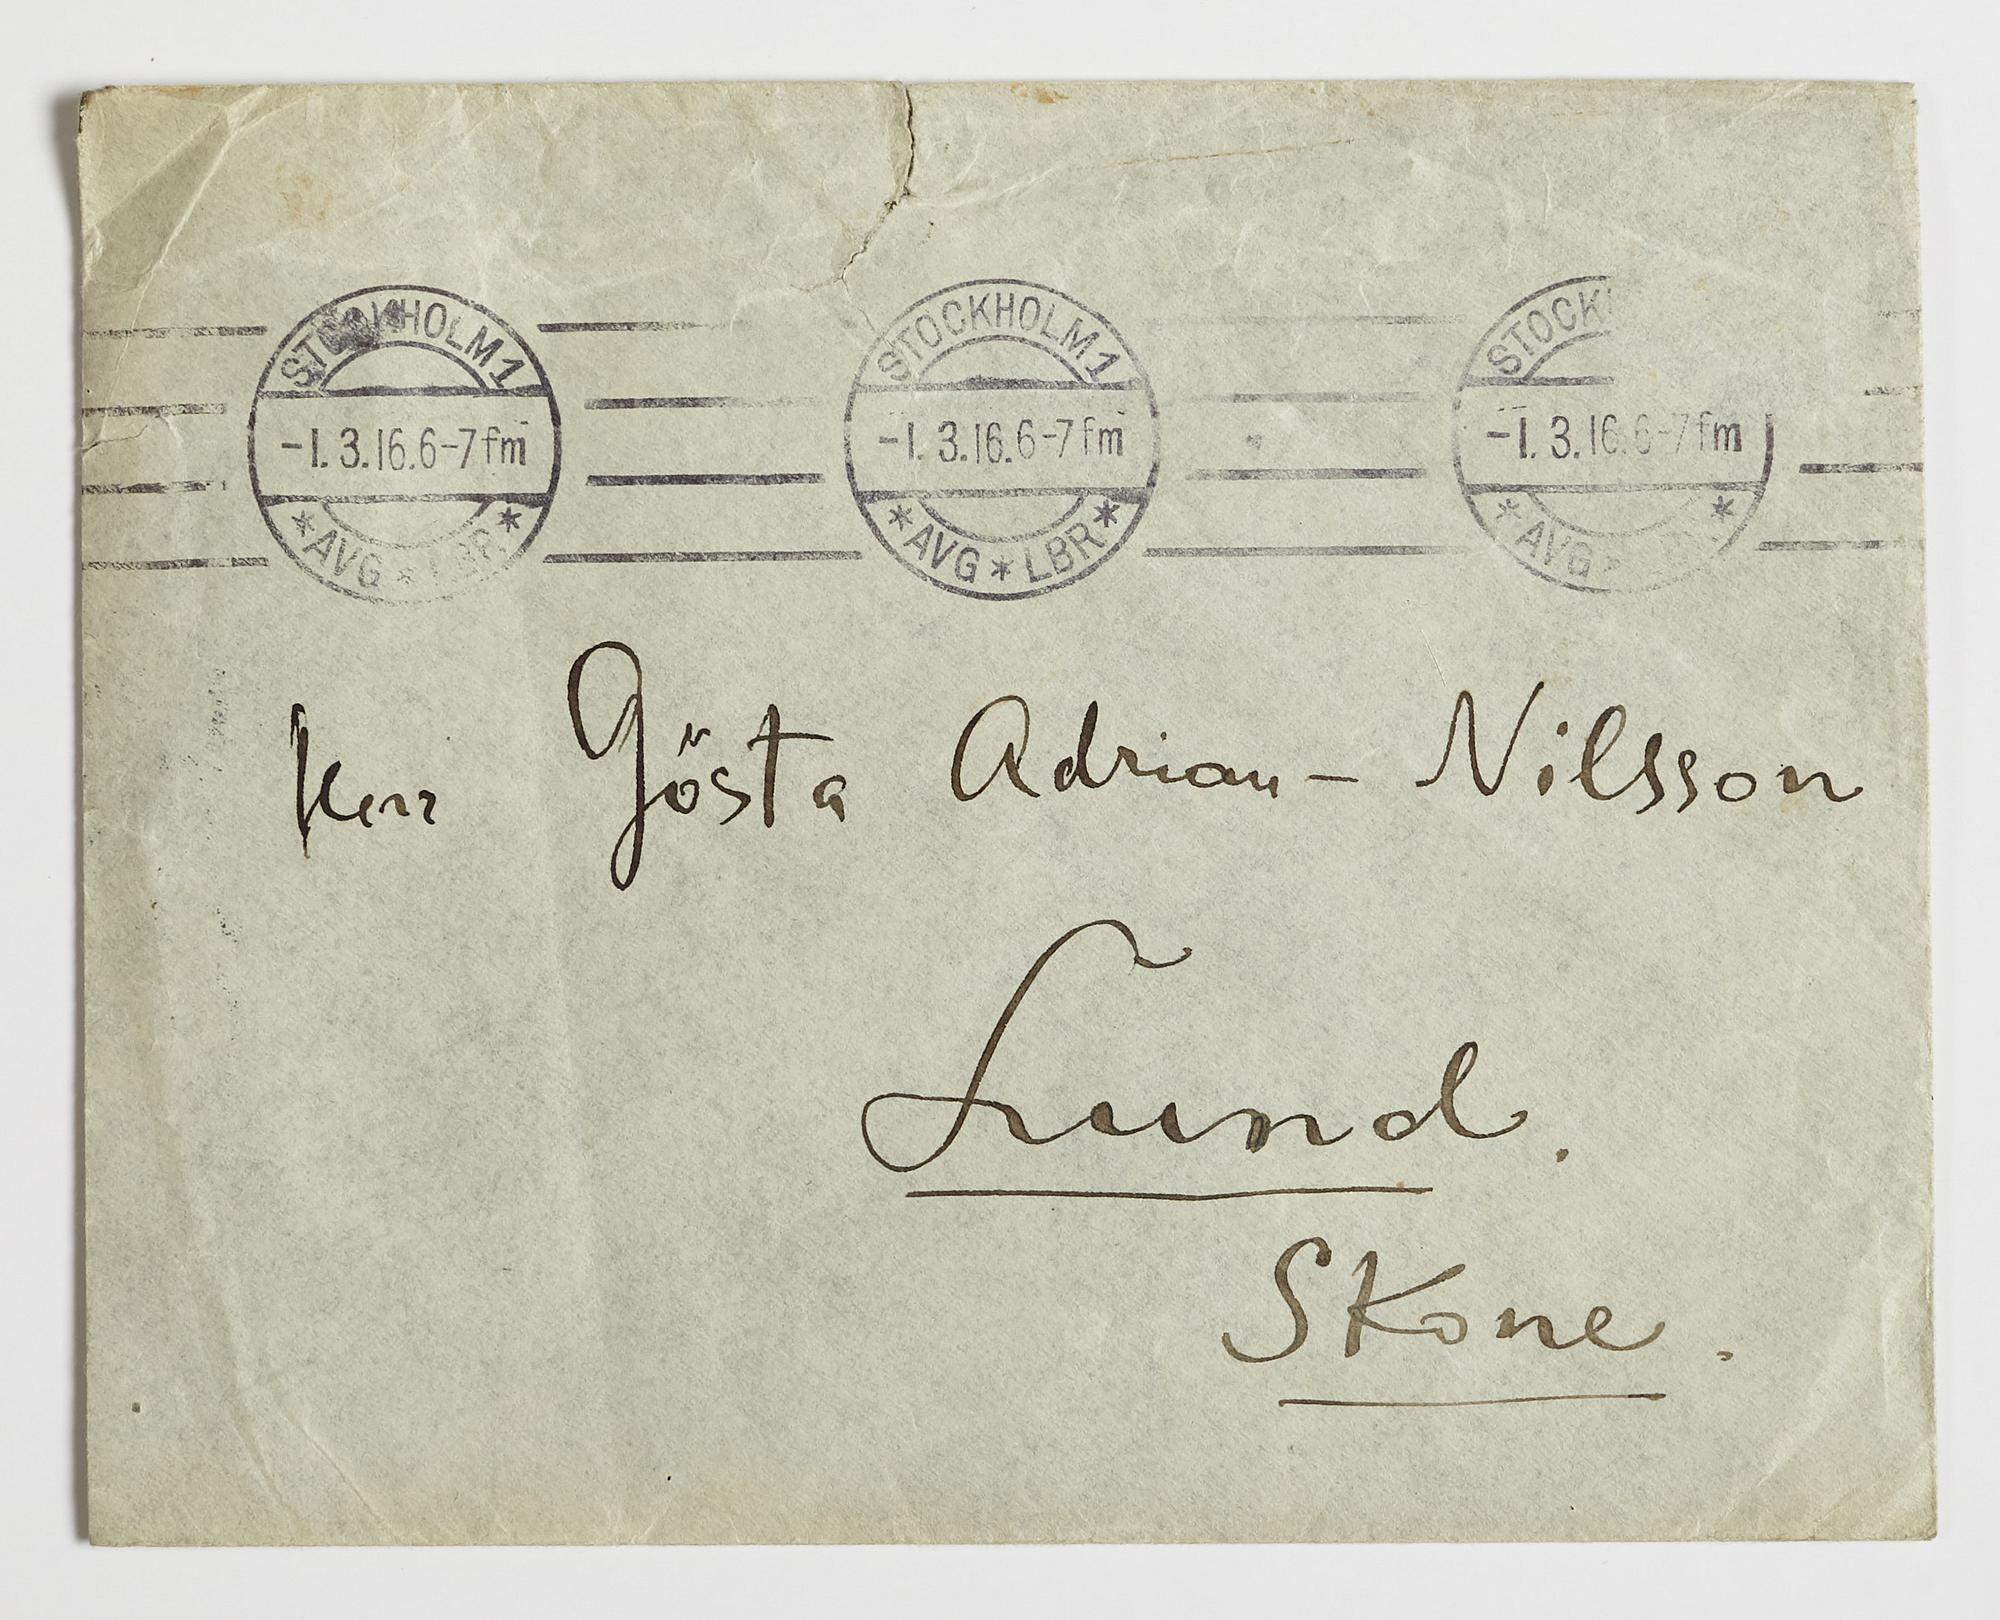 STOCKHOLM 1 -1.3.16.6-7fm * AVG * LBR *
STOCKHOLM 1 -1.3.16.6-7fm * AVG * LBR *
STOCK -1.3.16.6-7fm * AVG *
Herr Gösta Adrian-Nilsson
Lund.
Skone.